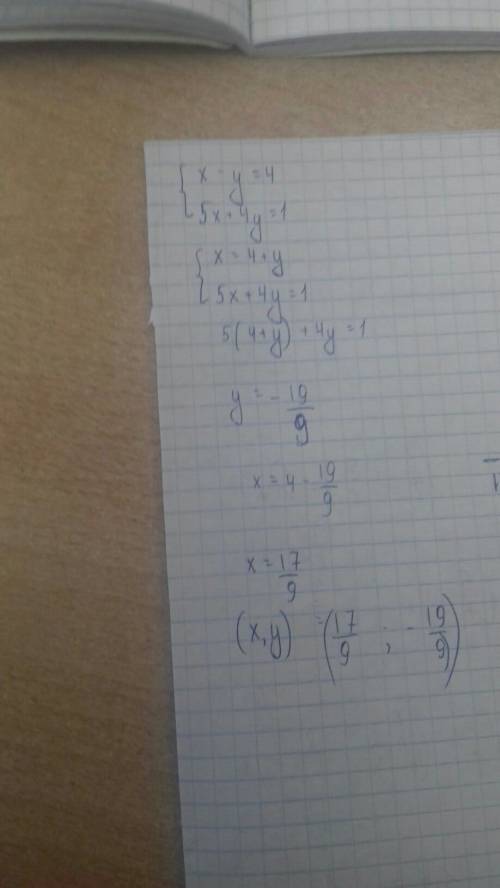 x - y = 4
5x + 4y = 1
x = 4 + y
5x + 4y = 1
5(4 + y) + 4y = 1
y = - 19/9
x = 4 - 19/9
x = 17/9
(x, y) = (17/9 ; - 19/9)